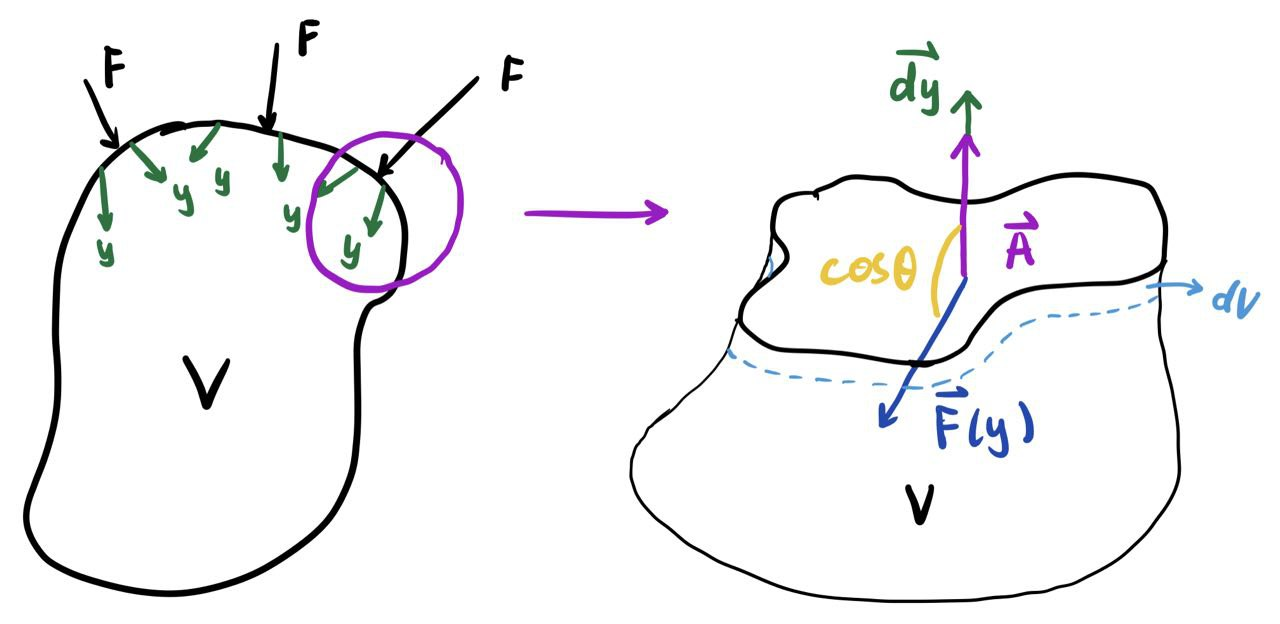 F
F
F
y
y
y
y
y
V
d⃗y
A⃗
cosθ
dV
F⃗(y)
V